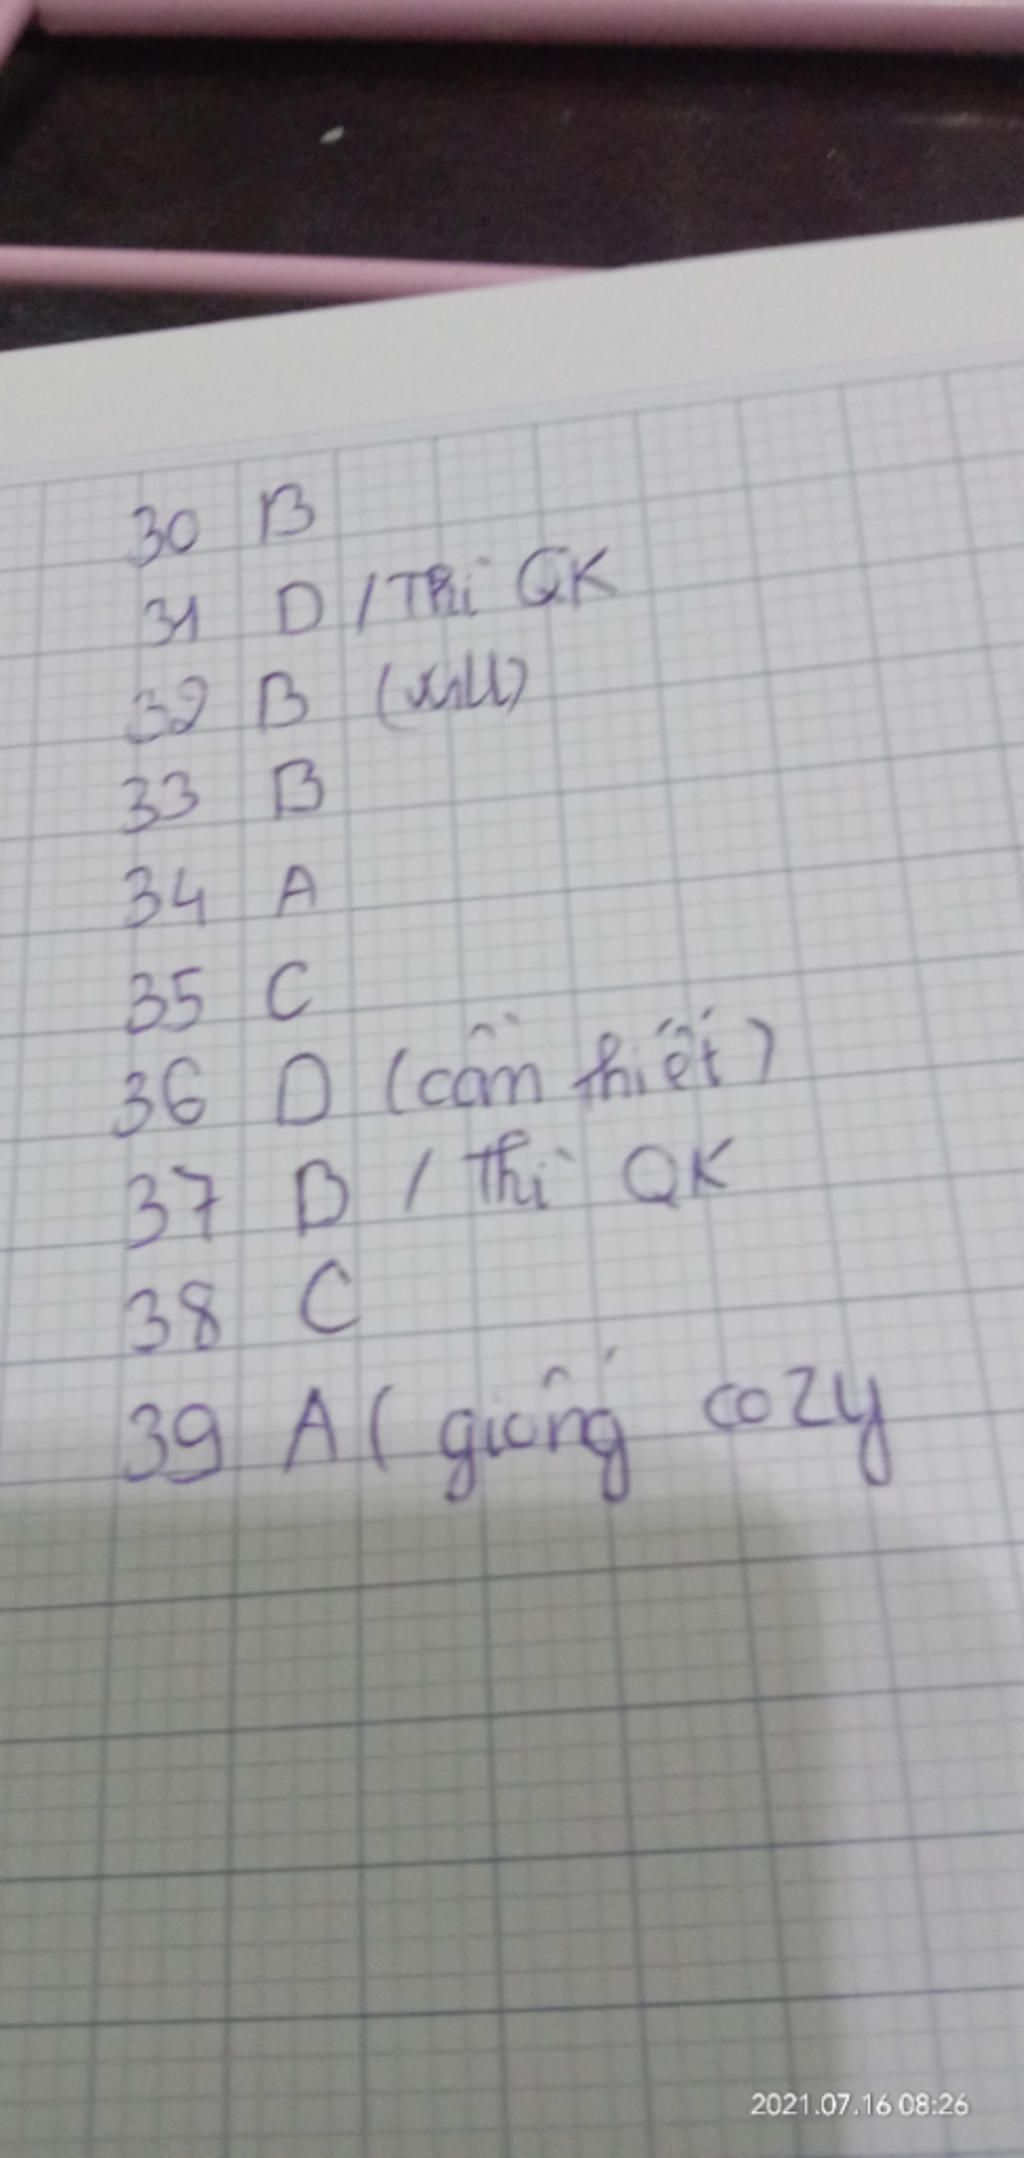 30 B
31 D / Thì QK
32 B (will)
33 B
34 A
35 C
36 D (cần thiết)
37 B / Thì QK
38 C
39 A ( giống cozy
2021.07.16 08:26